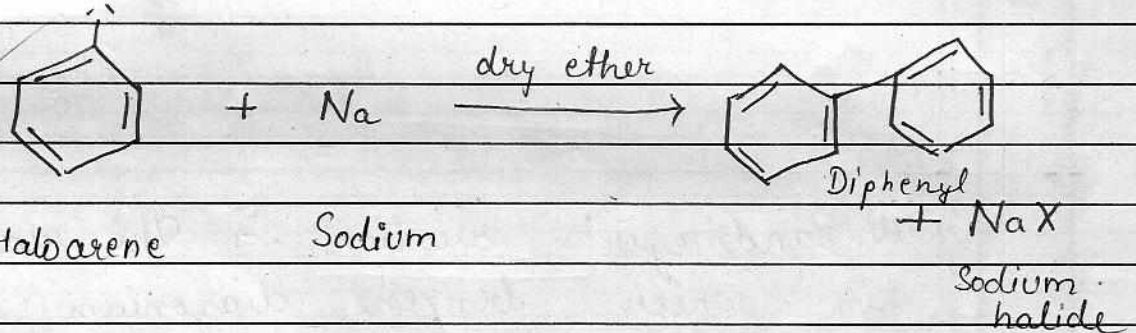 dry ether
+ Na
Diphenyl
+ NaX
Haloarene Sodium
Sodium
halide